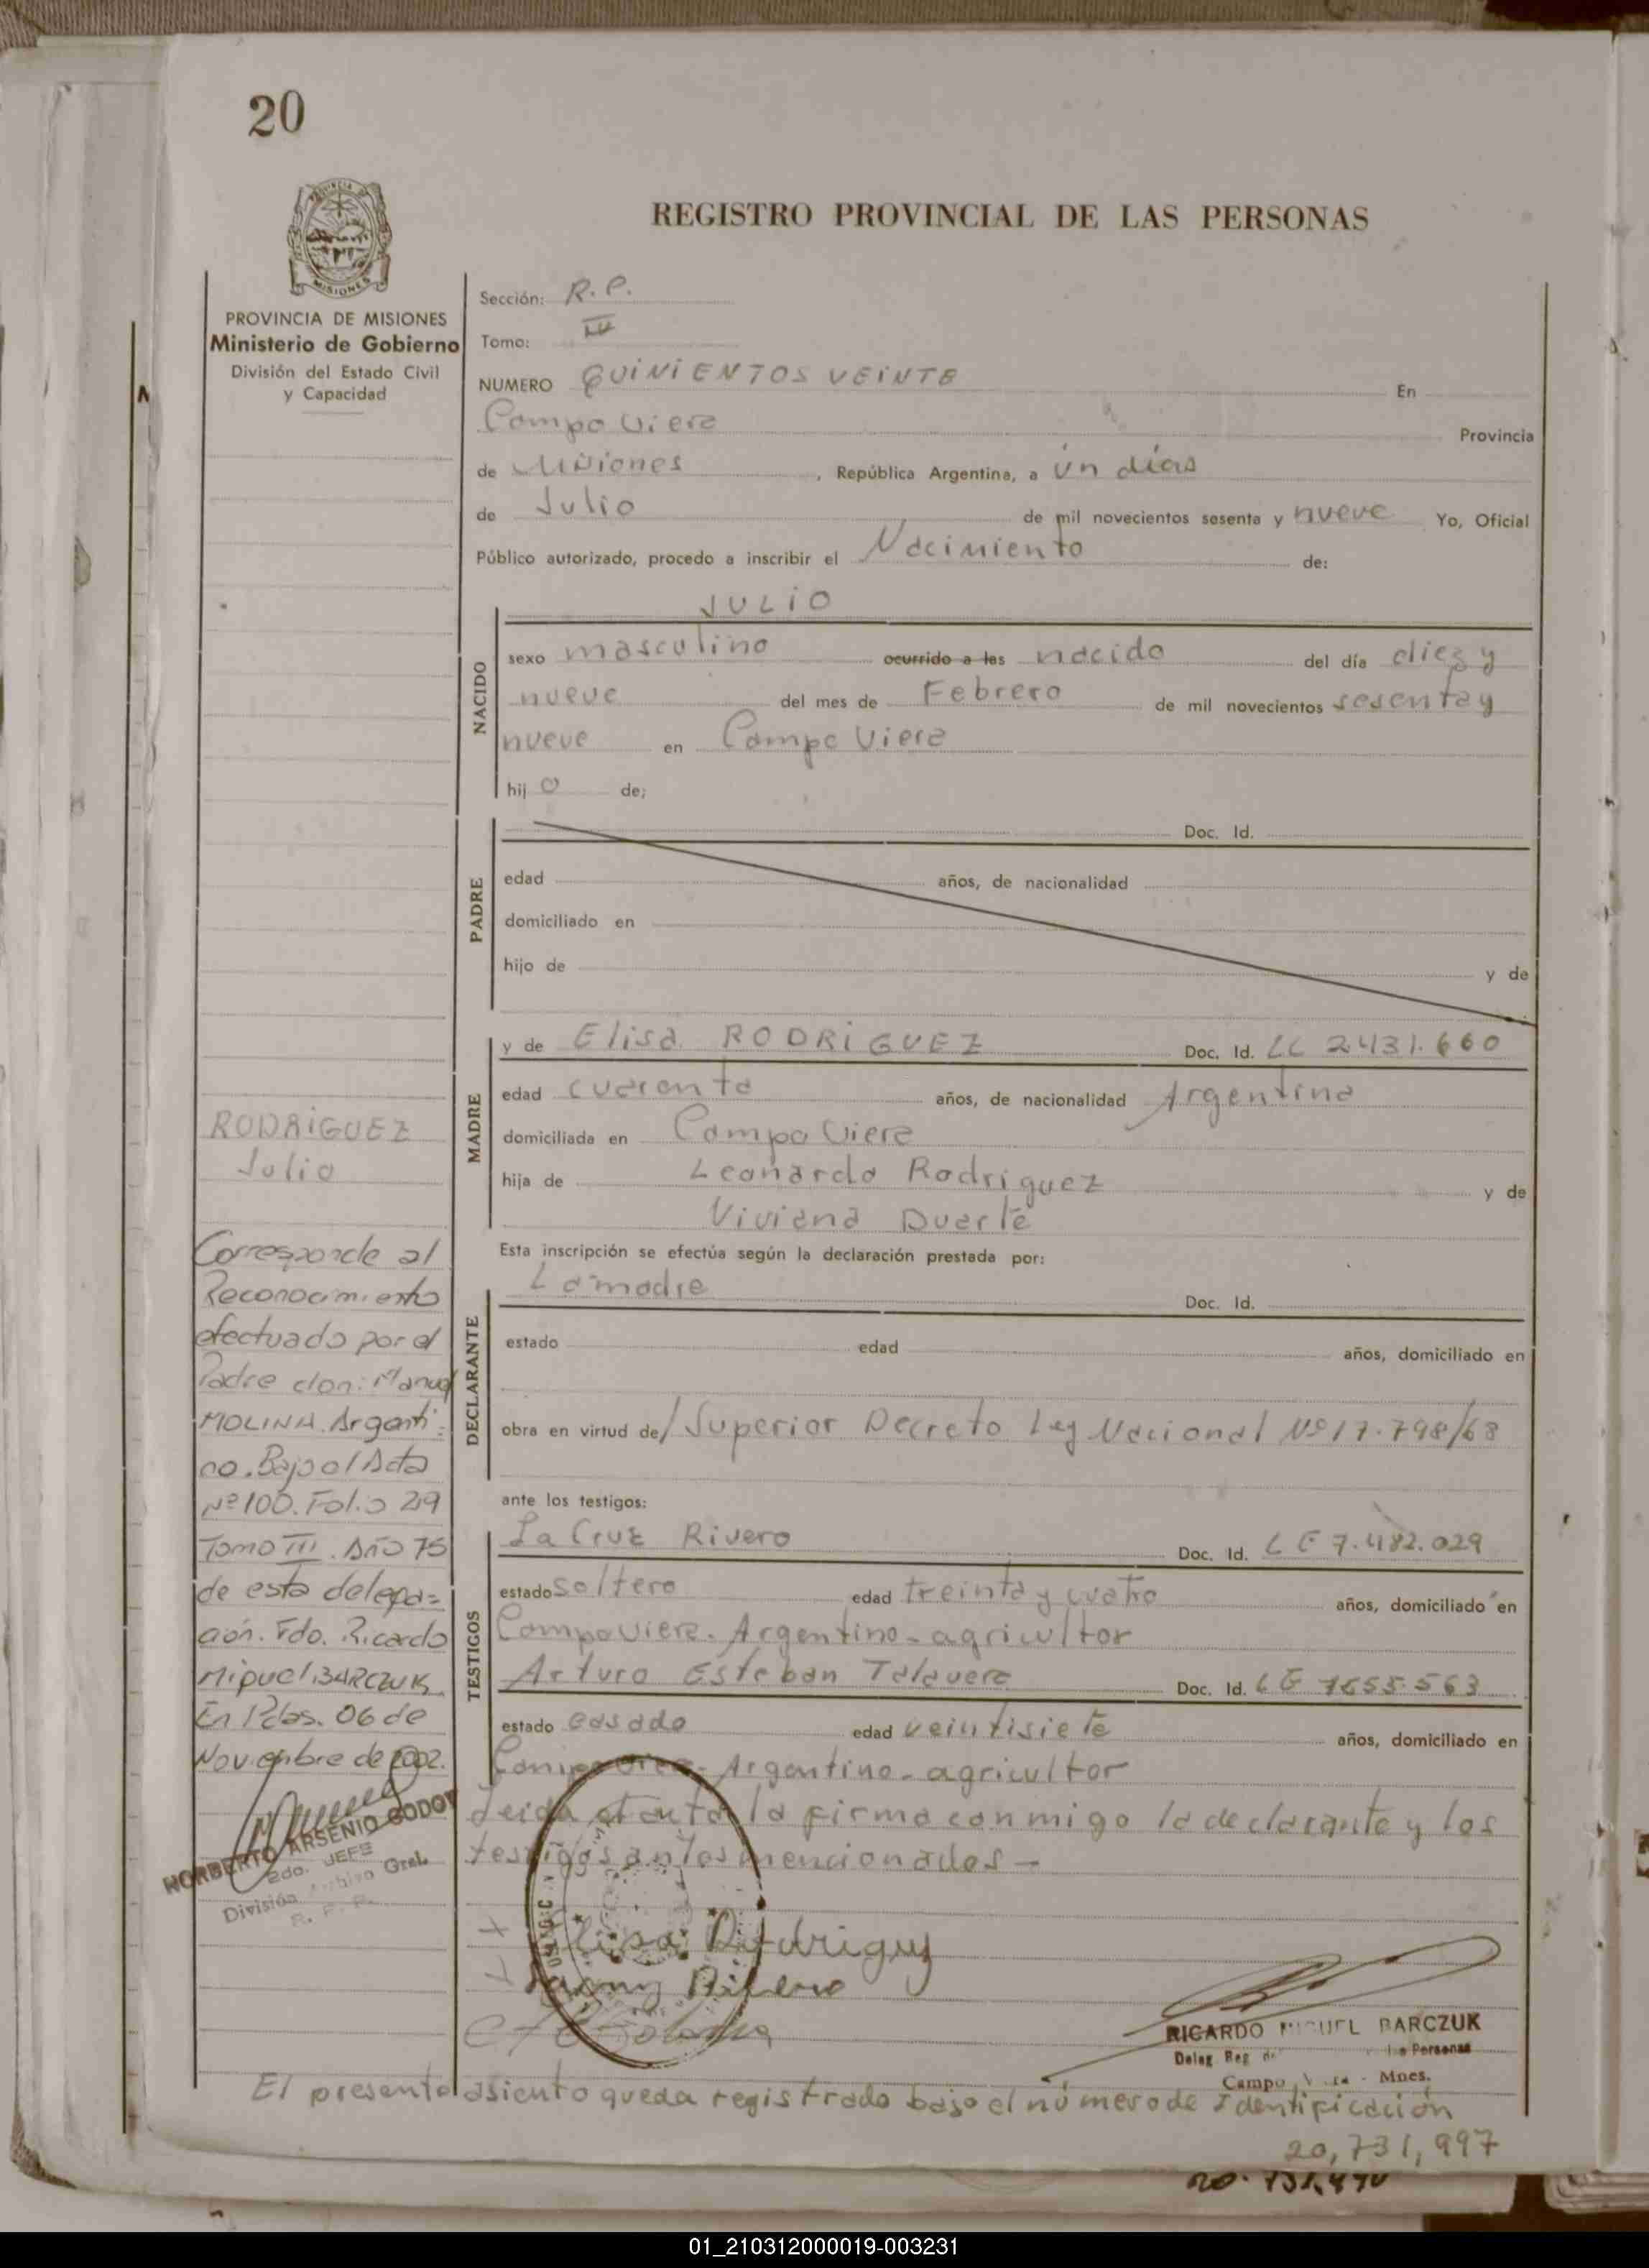 20
PROVINCIA DE
MISIONES
REGISTRO PROVINCIAL DE LAS PERSONAS
PROVINCIA DE MISIONES
Ministerio de Gobierno
División del Estado Civil
y Capacidad
Sección: R.P.
Tomo: IV
NUMERO QUINIENTOS VEINTE En
Campo Viera Provincia
de Misiones, República Argentina, a ún días
de Julio de mil novecientos sesenta y nueve Yo, Oficial
Público autorizado, procedo a inscribir el Nacimiento de:
JULIO
NACIDO
sexo masculino ocurrido a las nacido del día diez y
nueve del mes de Febrero de mil novecientos sesenta y
nueve en Campo Viera
hij o de;
PADRE
Doc. Id.
edad años, de nacionalidad
domiciliado en
hijo de y de
MADRE
y de Elisa RODRIGUEZ Doc. Id. LC 2.431.660
edad cuarenta años, de nacionalidad Argentina
domiciliada en Campo Viera
hija de Leonardo Rodriguez y de
Viviana Duarte
Esta inscripción se efectúa según la declaración prestada por:
DECLARANTE
La madre Doc. Id.
estado edad años, domiciliado en
obra en virtud de/ Superior Decreto Ley Nacional Nº 17.798/68
ante los testigos:
TESTIGOS
La Cruz Rivero Doc. Id. LE 7.482.029
estado soltero edad treinta y cuatro años, domiciliado en
Campo Viera. Argentino - agricultor
Arturo Esteban Talavera Doc. Id. LE 7655563
estado casado edad veintisiete años, domiciliado en
Campo Viera - Argentino - agricultor
Leida el acta la firma conmigo la declarante y los
testigos antes mencionados -
Elisa Rodriguez
Rivero
RICARDO MIGUEL BARCZUK
Deleg. Reg. de las Personas
Campo Viera - Mnes.
El presente asiento queda registrado bajo el número de Identificación
20,731,997
RODRIGUEZ
Julio
Corresponde al
Reconocimiento
efectuado por el
Padre don: Manuel
MOLINA. Argenti=
no. Bajo el Acta
Nº 100. Folio 249
Tomo III. Año 75
de esta delega=
ción. Fdo. Ricardo
Miguel BARCZUK
En Pdas. 06 de
Noviembre de 2002.
NORBERTO ARSENIO GODOY
2do. JEFE
División Archivo Gral.
R. P. P.
01_210312000019-003231